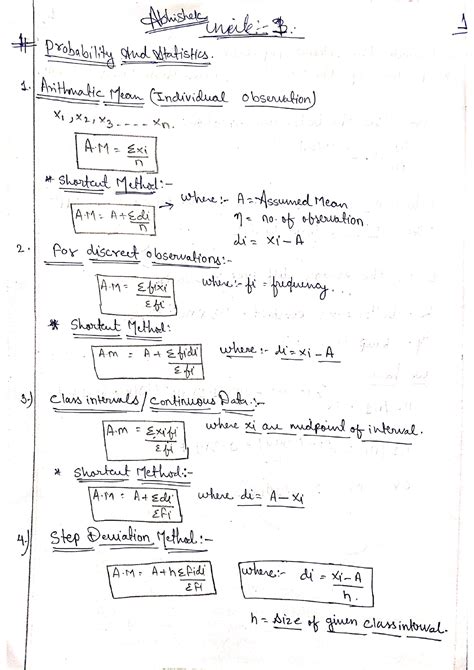 Abhishek Unit:- 3. 1
# Probability And Statistics.
1. Arithmatic Mean (Individual observation)
x1, x2, x3 ---- xn.
A.M = Σxi/n
* Shortcut Method:-
A.M = A+Σdi/n → where:- A = Assumed Mean
η = no. of observation
di = xi - A
2. for discreet observations:-
A.M = Σfixi/Σfi where:- fi = frequency.
* Shortcut Method:
A.m = A + Σfidi/Σfi where:- di = xi - A
3.) Class intervals / Continuous Data:-
A.m = Σxifi/Σfi where xi are midpoint of interval.
* Shortcut Method:-
A.M = A+Σdi/Σfi where di = A - xi
4.) Step Deviation Method:-
A.M = A+hΣfidi/Σfi where:- di = xi-A/h.
h = size of given class interval.